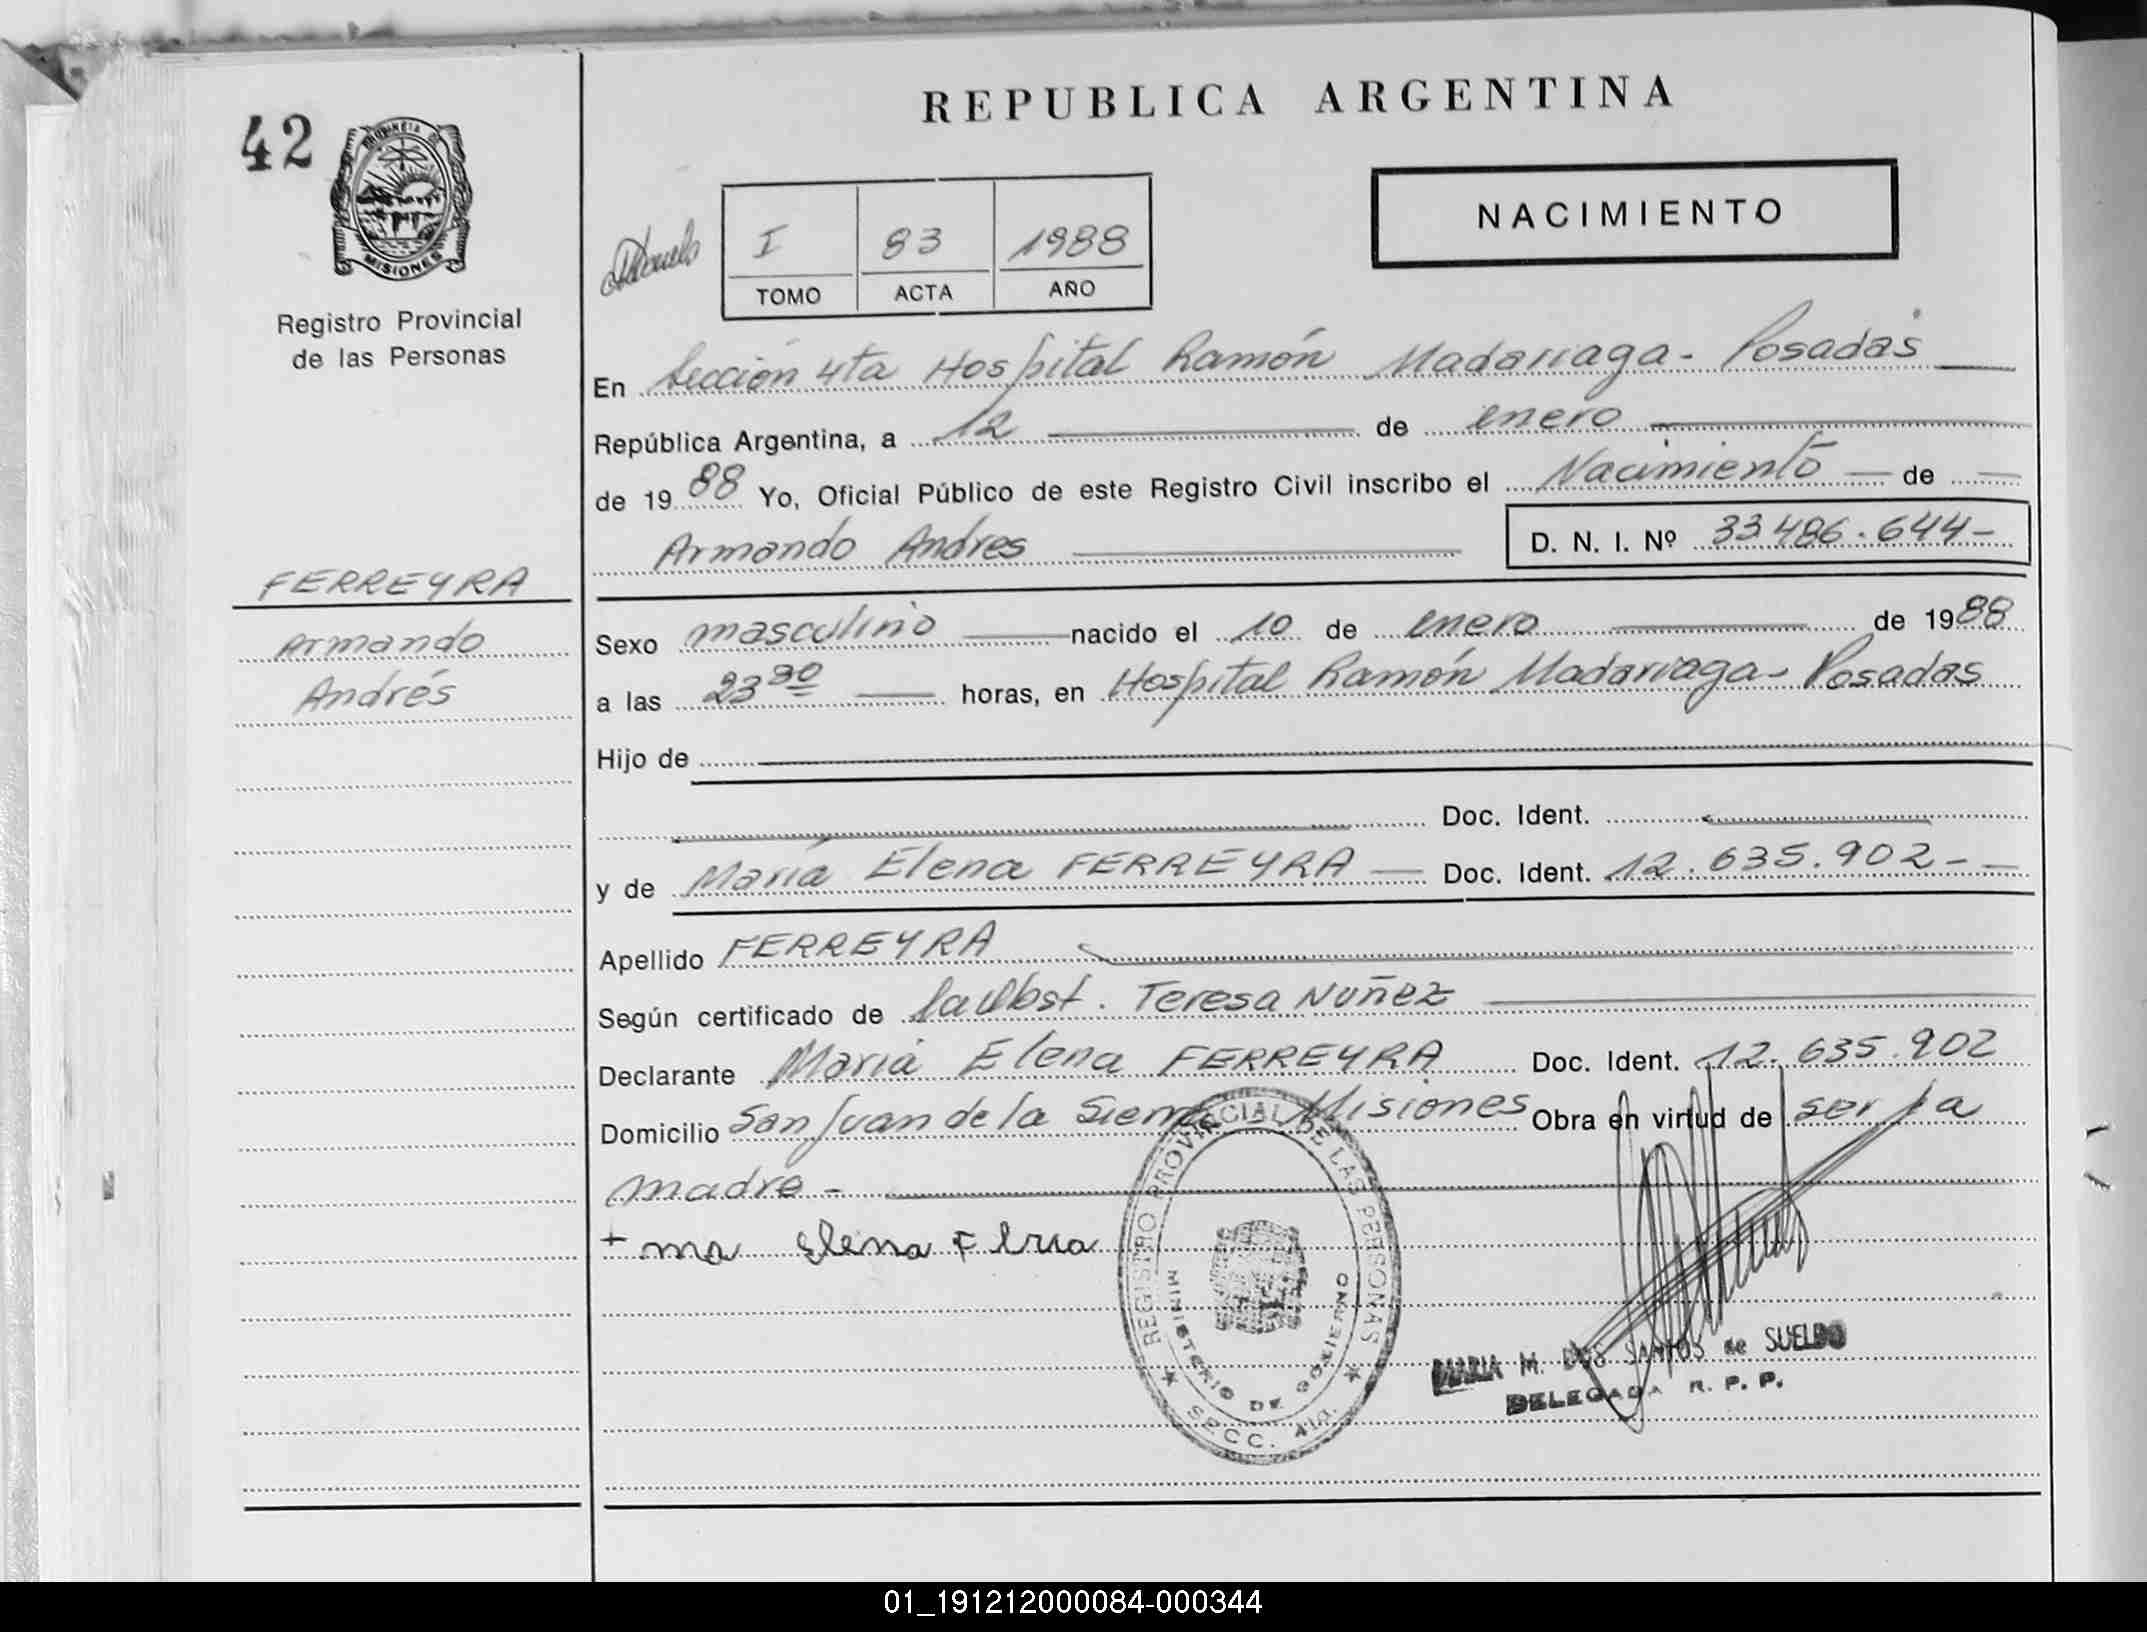 REPUBLICA ARGENTINA
42
PROVINCIA DE
MISIONES
Registro Provincial
de las Personas
NACIMIENTO
I 83 1988
TOMO ACTA AÑO
En Sección 4ta Hospital Ramón Madariaga - Posadas
República Argentina, a 12 de enero
de 1988 Yo, Oficial Público de este Registro Civil inscribo el Nacimiento de
Armando Andres D. N. I. Nº 33486.644-
FERREYRA
Armando
Andrés
Sexo masculino nacido el 10 de enero de 1988
a las 23 30 horas, en Hospital Ramón Madariaga - Posadas
Hijo de
Doc. Ident.
y de María Elena FERREYRA Doc. Ident. 12.635.902-
Apellido FERREYRA
Según certificado de Teresa Nuñez
Declarante María Elena FERREYRA Doc. Ident. 12.635.902
Domicilio San Juan de la Sierra Misiones Obra en virtud de ser la
madre -
+ ma Elena
REGISTRO PROVINCIAL DE LAS PERSONAS
MINISTERIO DE GOBIERNO
SECC. 4ta.
MARIA M. DOS SANTOS de SUELDO
DELEGADA R. P. P.
01_191212000084-000344